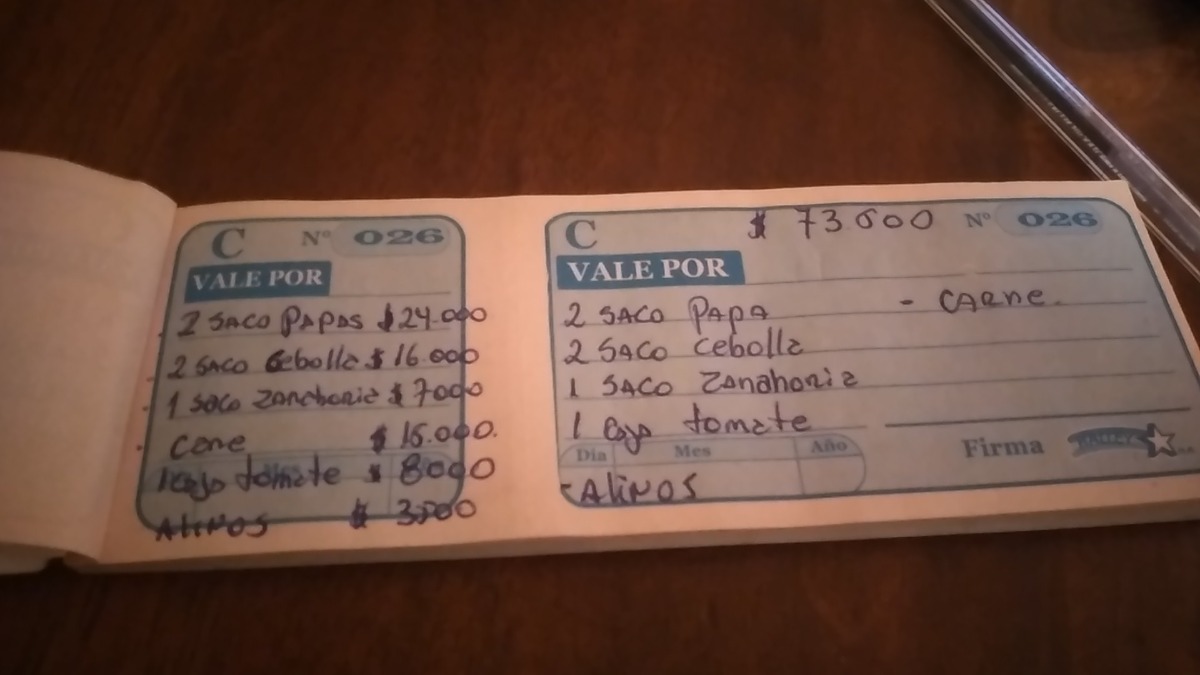 C Nº 026
VALE POR
2 SACO PAPAS $24.000
2 SACO Cebolla $16.000
1 SACO Zanahoria $7000
Carne $15.000.
1 cajo tomate $8000
ALIÑOS $3,500
C $73.000 Nº 026
VALE POR
2 SACO PAPA - CARNE.
2 SACO Cebolla
1 SACO Zanahoria
1 cajo tomate
Día Mes Año Firma
-ALIÑOS